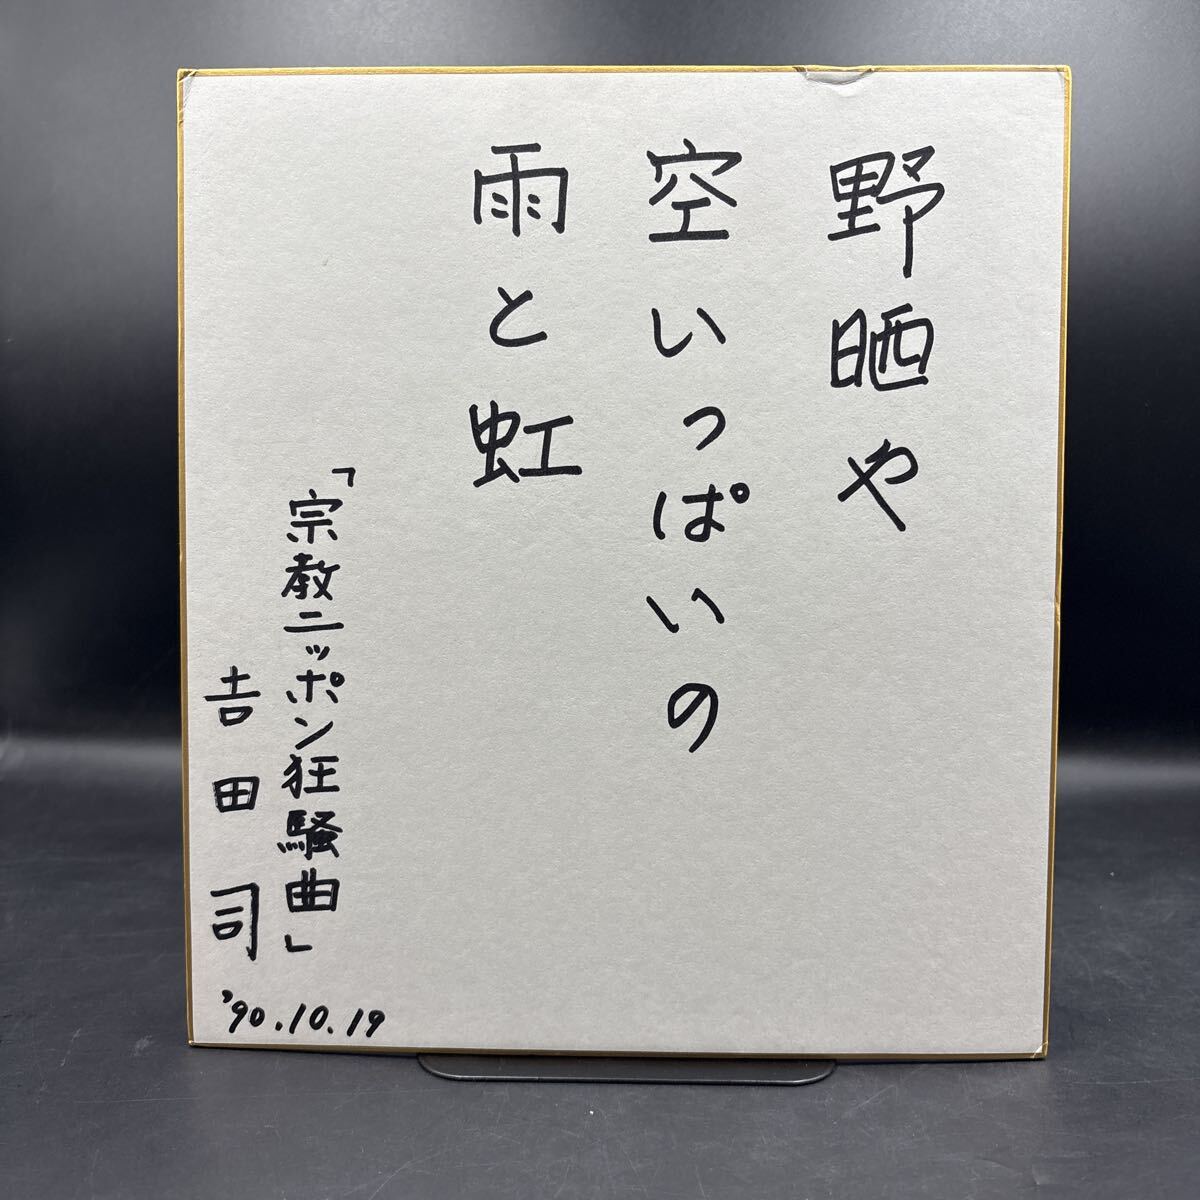 野晒や
空いっぱいの
雨と虹
「宗教ニッポン狂騒曲」
吉田司
'90.10.19